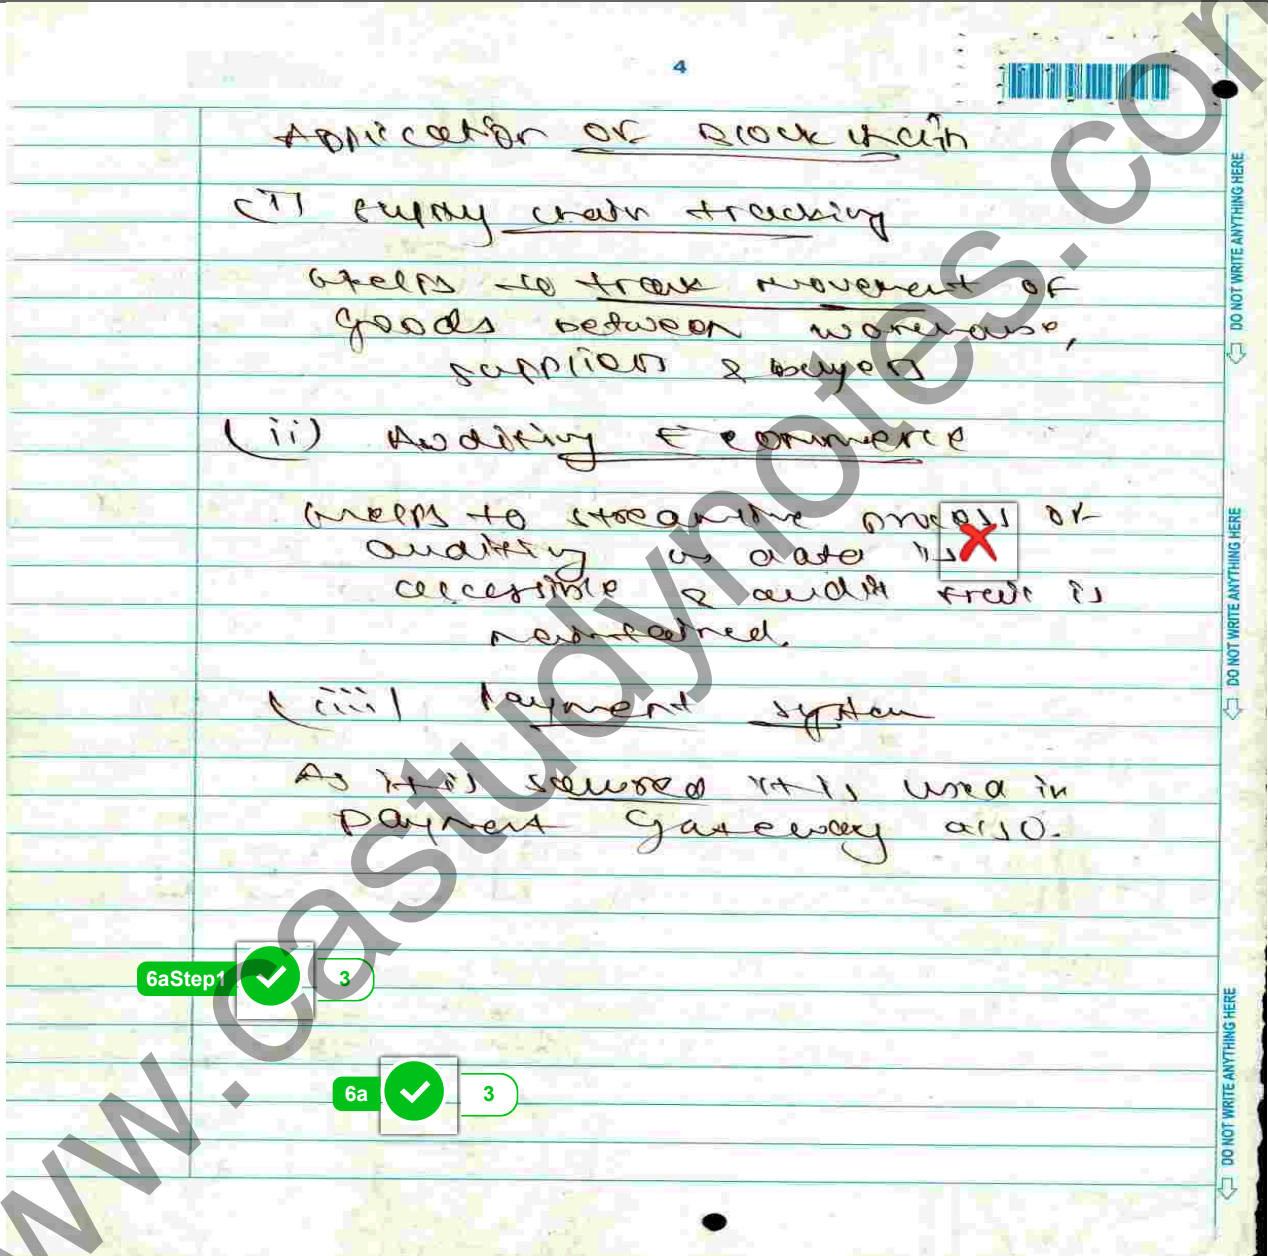 4
Application of Blockchain
(i) Supply chain tracking
Helps to track movement of
goods between warehouse,
suppliers & buyers
(ii) Auditing E commerce
Helps to streamline process of
auditing as data is
accessible & audit trail is
maintained.
(iii) Payment system
As it is secured it is used in
payment gateway also.
6aStep1 3
6a 3
DO NOT WRITE ANYTHING HERE
DO NOT WRITE ANYTHING HERE
DO NOT WRITE ANYTHING HERE
www.castudynotes.com